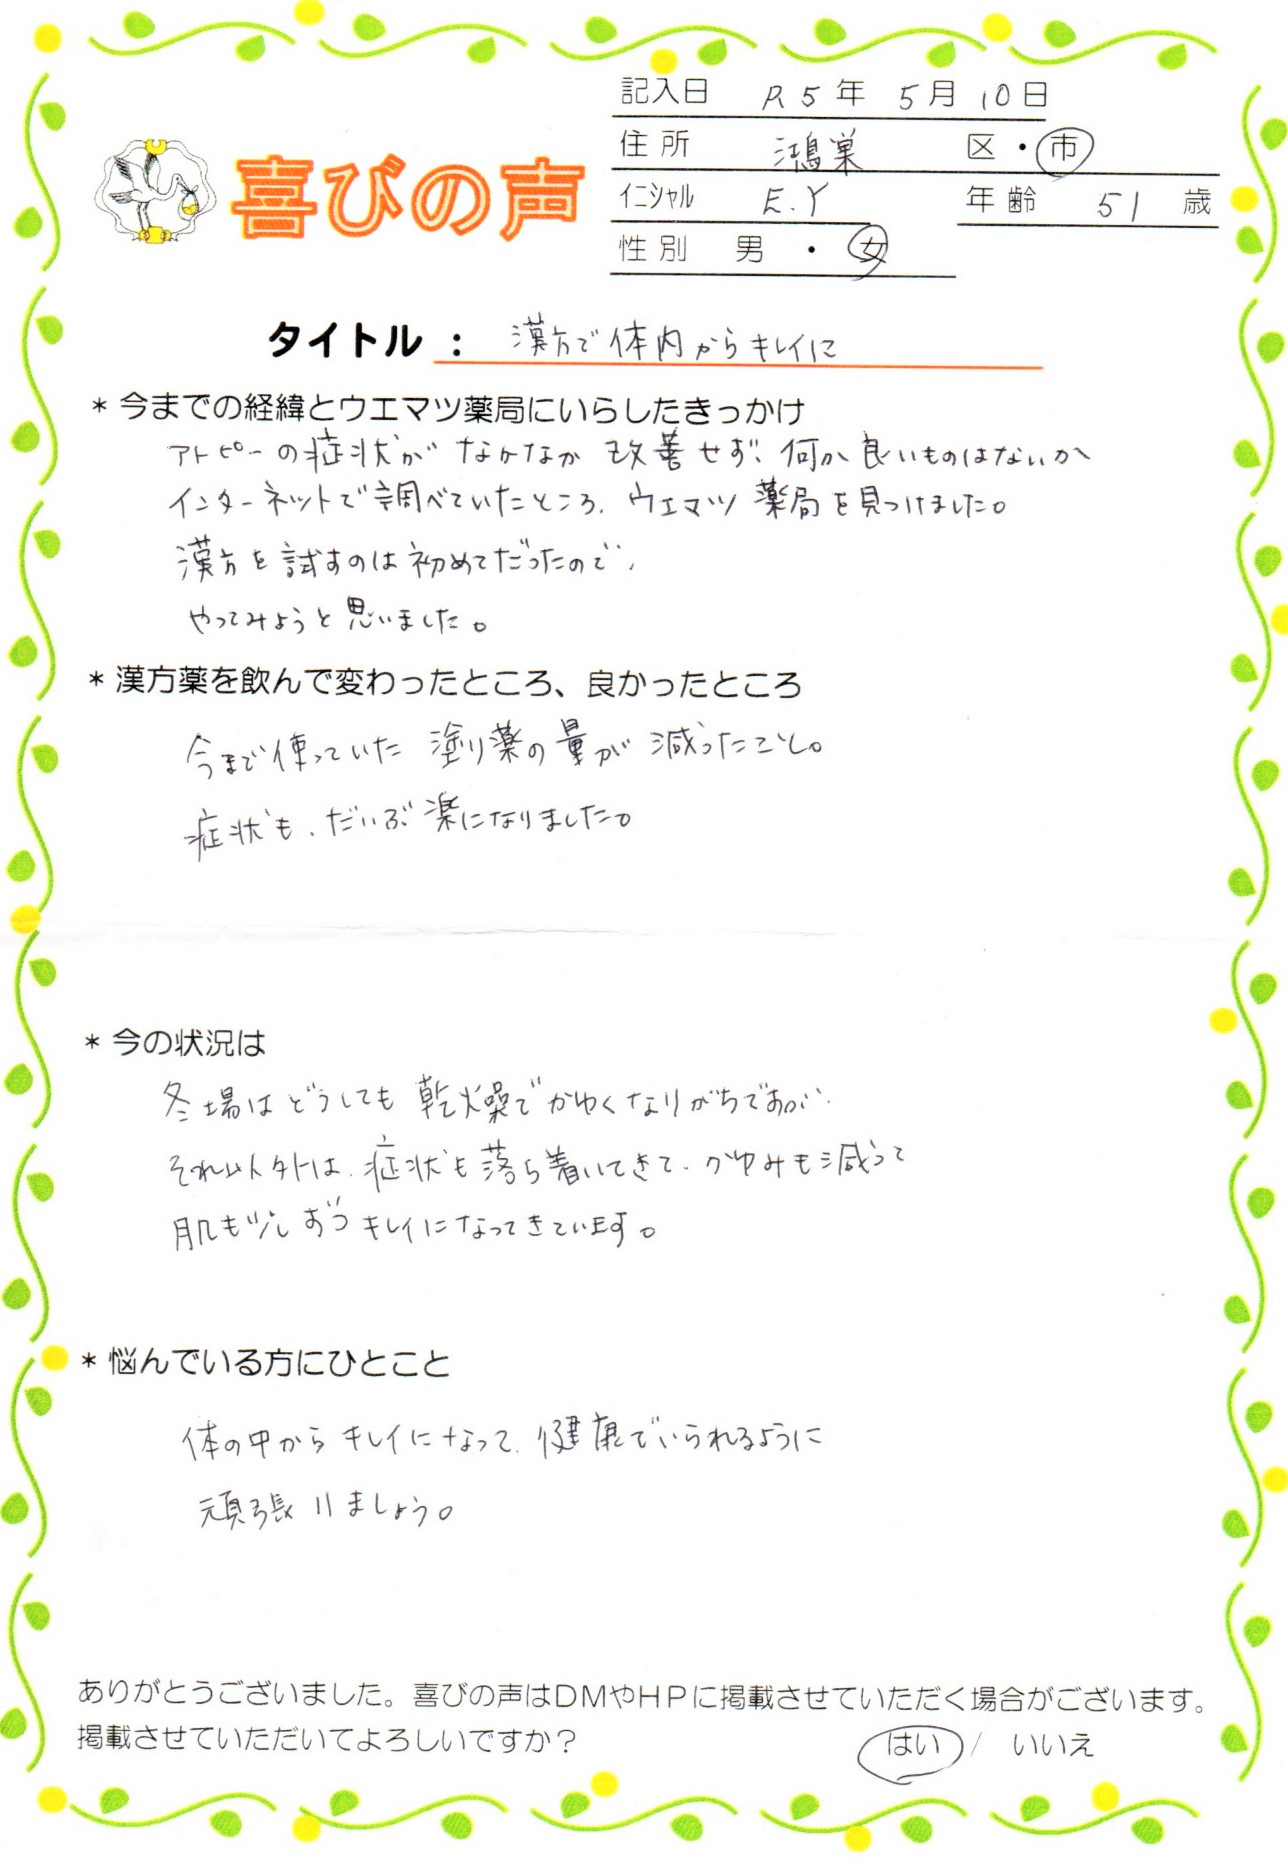 記入日 R5年 5月 10日
住所 鴻巣 区・市
イニシャル E.Y 年齢 51 歳
性別 男・女
喜びの声
タイトル： 漢方で体内からキレイに
* 今までの経緯とウエマツ薬局にいらしたきっかけ
アトピーの症状がなかなか改善せず、何か良いものはないか
インターネットで調べていたところ、ウエマツ薬局を見つけました。
漢方を試すのは初めてだったので、
やってみようと思いました。
* 漢方薬を飲んで変わったところ、良かったところ
今まで使っていた塗り薬の量が減ったこと。
症状も、だいぶ楽になりました。
* 今の状況は
冬場はどうしても乾燥でかゆくなりがちですが、
それ以外は、症状も落ち着いてきて、かゆみも減って
肌も少しずつキレイになってきています。
* 悩んでいる方にひとこと
体の中からキレイになって、健康でいられるように
頑張りましょう。
ありがとうございました。喜びの声はDMやHPに掲載させていただく場合がございます。
掲載させていただいてよろしいですか？ はい / いいえ